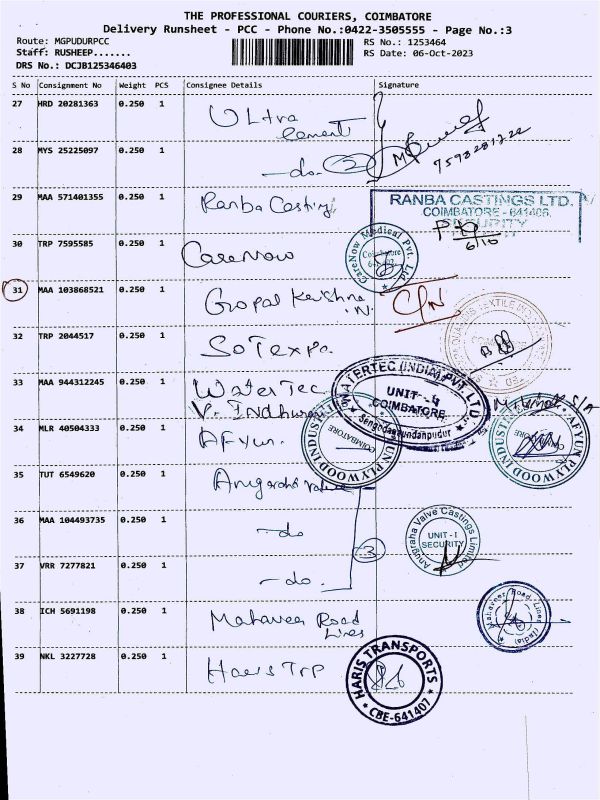 THE PROFESSIONAL COURIERS, COIMBATORE
Delivery Runsheet - PCC - Phone No.:0422-3505555 - Page No.:3
Route: MGPUDURPCC RS No.: 1253464
Staff: RUSHEEP....... RS Date: 06-Oct-2023
DRS No.: DCJB125346403
S No Consignment No Weight PCS Consignee Details Signature
27 HRD 20281363 0.250 1 Ultra Cement
28 MYS 25225097 0.250 1 -do. 2
29 MAA 571401355 0.250 1 Ranba Casting RANBA CASTINGS LTD.
COIMBATORE - 641406.
SECURITY
6/10
30 TRP 7595585 0.250 1 CareNow CareNow Medical Pvt. Ltd
Coimbatore
31 MAA 103868521 0.250 1 Gopal Krishna .N.
32 TRP 2044517 0.250 1 SoTexpa.
33 MAA 944312245 0.250 1 WaterTec WATERTEC (INDIA) PVT LTD.
UNIT - 4
COIMBATORE
Sengodagoundanpudur
34 MLR 40504333 0.250 1 AFyun. AFYUN PLYWOOD INDUST
COIMBATORE
AFYUN PLYWOOD INDUST
35 TUT 6549620 0.250 1 Anugraha Valve
36 MAA 104493735 0.250 1 -do Anugraha Valve Castings Limited
UNIT - I
SECURITY
3
37 VRR 7277821 0.250 1 -do.
38 ICH 5691198 0.250 1 Mahaveer Road Lines Mahaveer Road Lines (India)
39 NKL 3227728 0.250 1 Haris Trp HARIS TRANSPORTS
CBE-641407